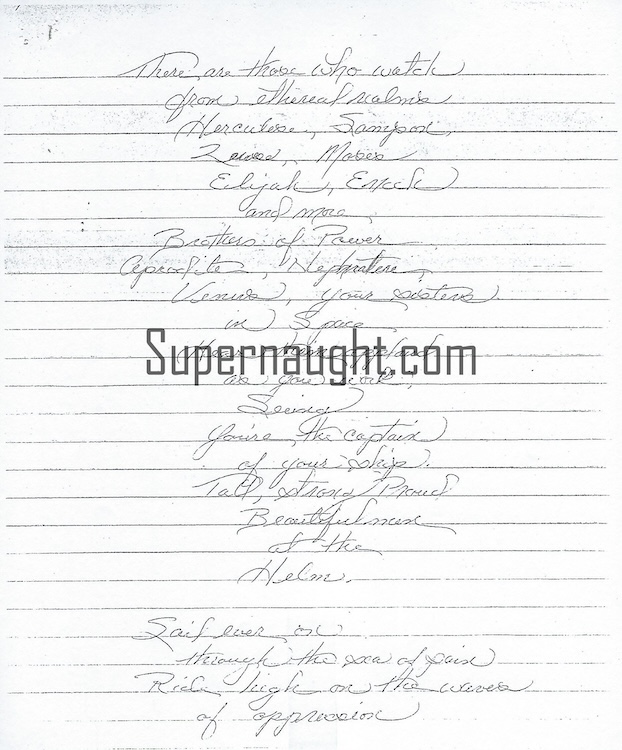 There are those who watch
from ethereal realms
Herculese, Sampson,
Zeuse, Moses
Elijah, Enoch
and more.
Brothers of Power
Aprodite, Nephratere,
Venus, your sisters
in Space
Supernaught.com
Hear them applaud
as you work,
Seeing
you're the captain
of your ship.
Tall, strong Proud
Beautiful men
at the
Helm.
Sail ever on
through the sea of pain
Ride high on the waves
of oppression